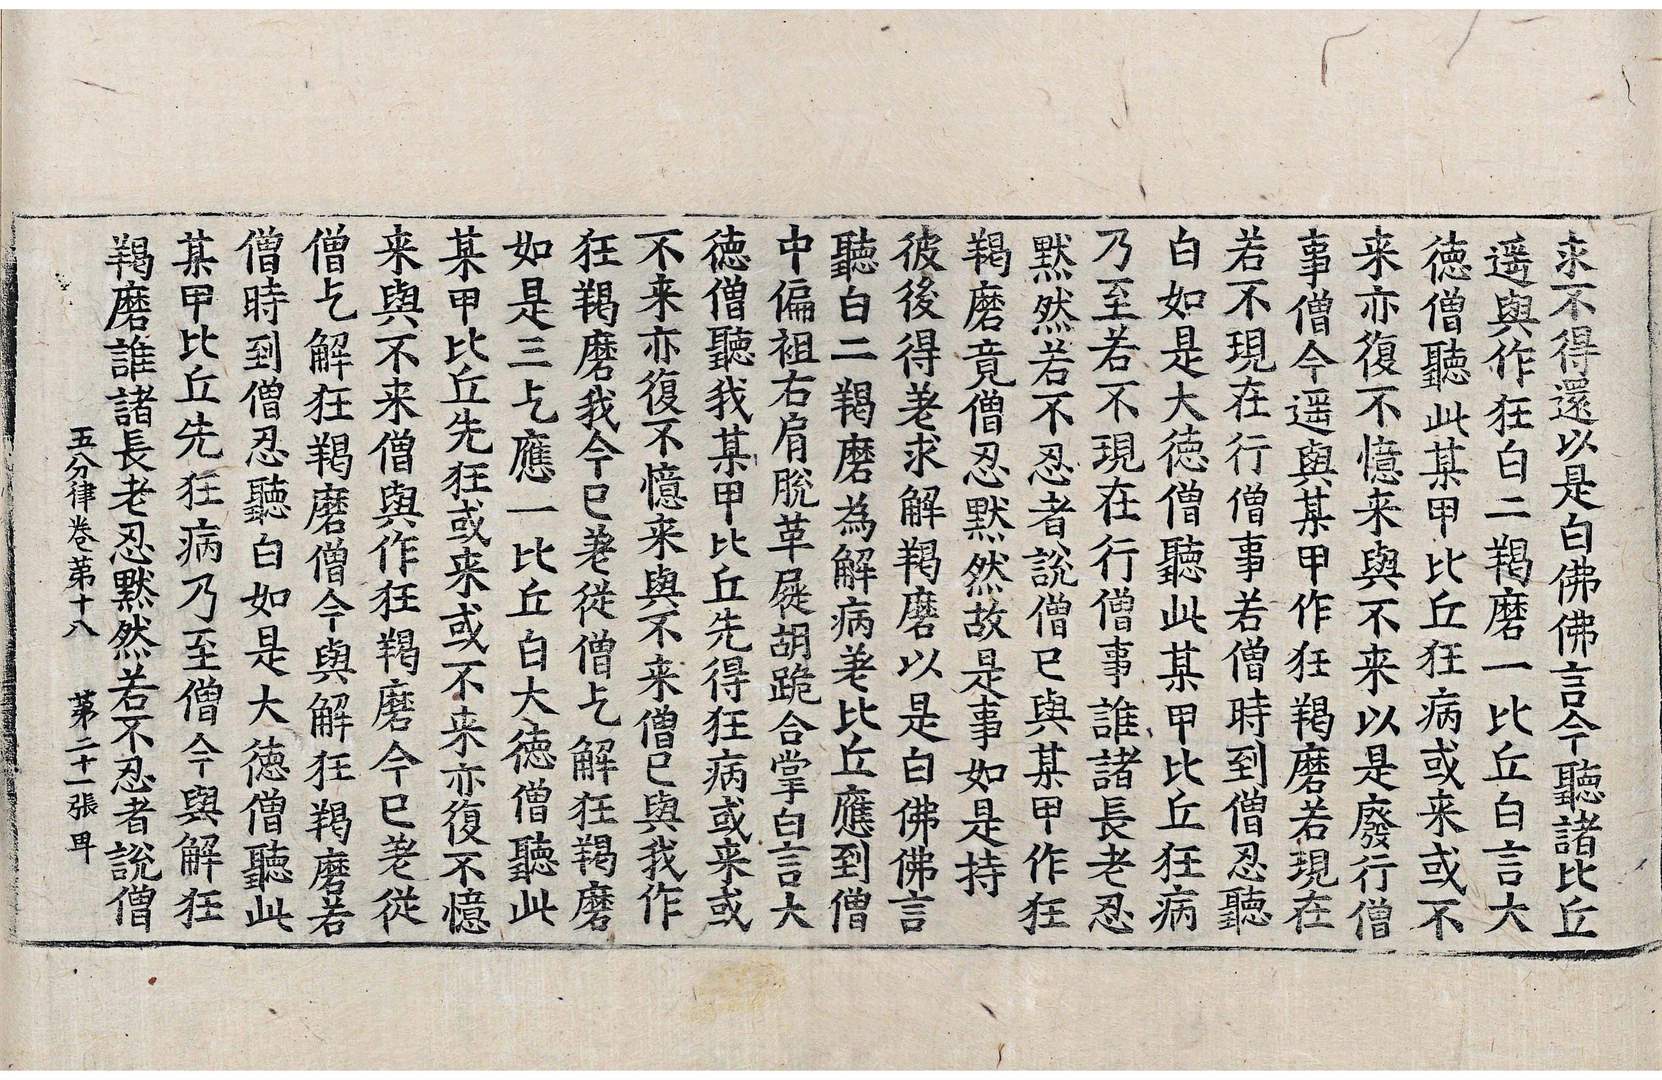 求不得還以是白佛佛言今聽諸比丘
遥與作狂白二羯磨一比丘白言大
徳僧聽此某甲比丘狂病或来或不
来亦復不憶来與不来以是廢行僧
事僧今遥與某甲作狂羯磨若現在
若不現在行僧事若僧時到僧忍聽
白如是大徳僧聽此某甲比丘狂病
乃至若不現在行僧事誰諸長老忍
黙然若不忍者說僧已與某甲作狂
羯磨竟僧忍黙然故是事如是持
彼後得差求解羯磨以是白佛佛言
聽白二羯磨為解病差比丘應到僧
中偏袒右肩脫革屣胡跪合掌白言大
徳僧聽我某甲比丘先得狂病或来或
不来亦復不憶来與不来僧已與我作
狂羯磨我今已差從僧乞解狂羯磨
如是三乞應一比丘白大徳僧聽此
某甲比丘先狂或来或不来亦復不憶
来與不来僧與作狂羯磨今已差從
僧乞解狂羯磨僧今與解狂羯磨若
僧時到僧忍聽白如是大徳僧聽此
某甲比丘先狂病乃至僧今與解狂
羯磨誰諸長老忍黙然若不忍者說僧
五分律卷第十八 第二十一張